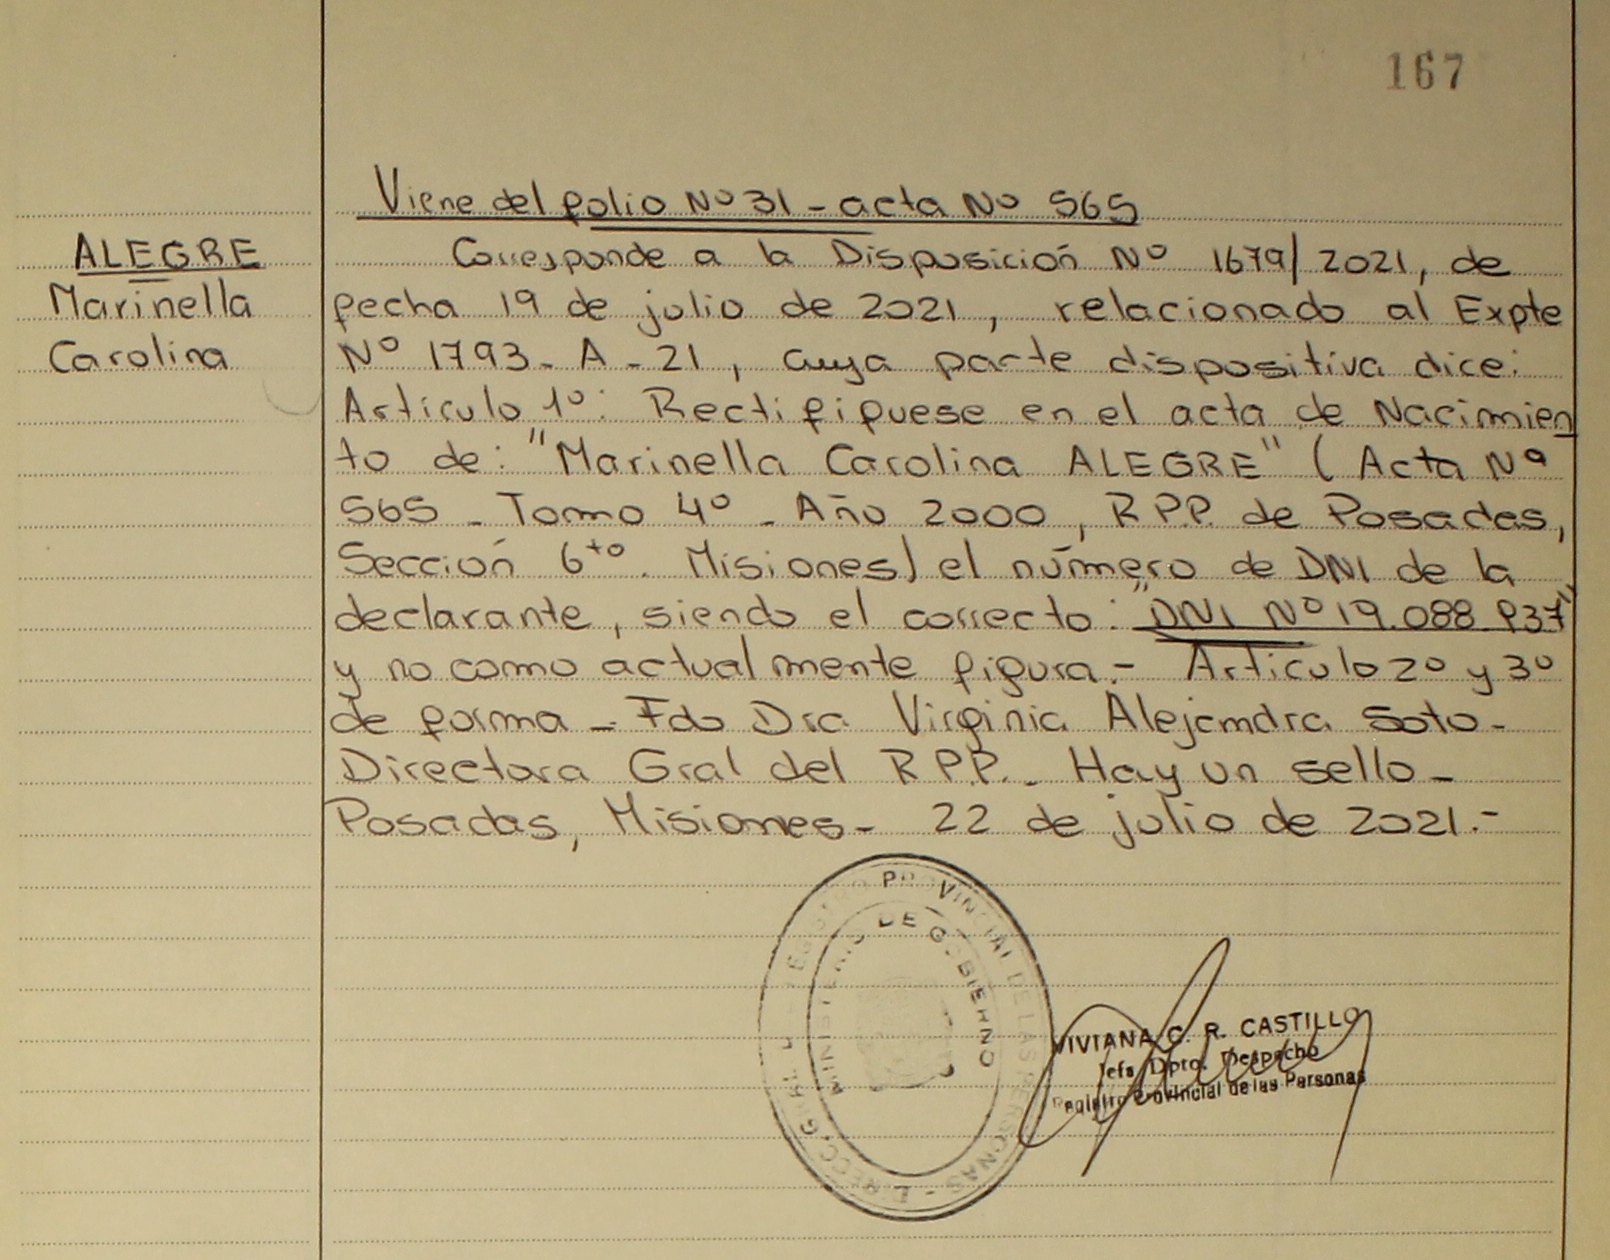 167
Viene del folio Nº 31 - acta Nº 565
ALEGRE
Marinella
Carolina
Corresponde a la Disposición Nº 1679/2021, de
fecha 19 de julio de 2021, relacionado al Expte
Nº 1793 - A - 21, cuya parte dispositiva dice:
Artículo 1º: Rectifiquese en el acta de Nacimien
to de: "Marinella Carolina ALEGRE" (Acta Nº
565 - Tomo 4º - Año 2000, R.P.P. de Posadas,
Sección 6to. Misiones) el número de DNI de la
declarante, siendo el correcto: "DNI Nº 19.088.937"
y no como actualmente figura.- Artículo 2º y 3º
de forma - Fdo Dra Virginia Alejandra Soto -
Directora Gral del R.P.P. - Hay un sello -
Posadas, Misiones - 22 de julio de 2021.-
DIRECC. GRAL. REGISTRO PROVINCIAL DE LAS PERSONAS -
MINISTERIO DE GOBIERNO
VIVIANA C. R. CASTILLO
Jefa Dpto. Despacho
Registro Provincial de las Personas